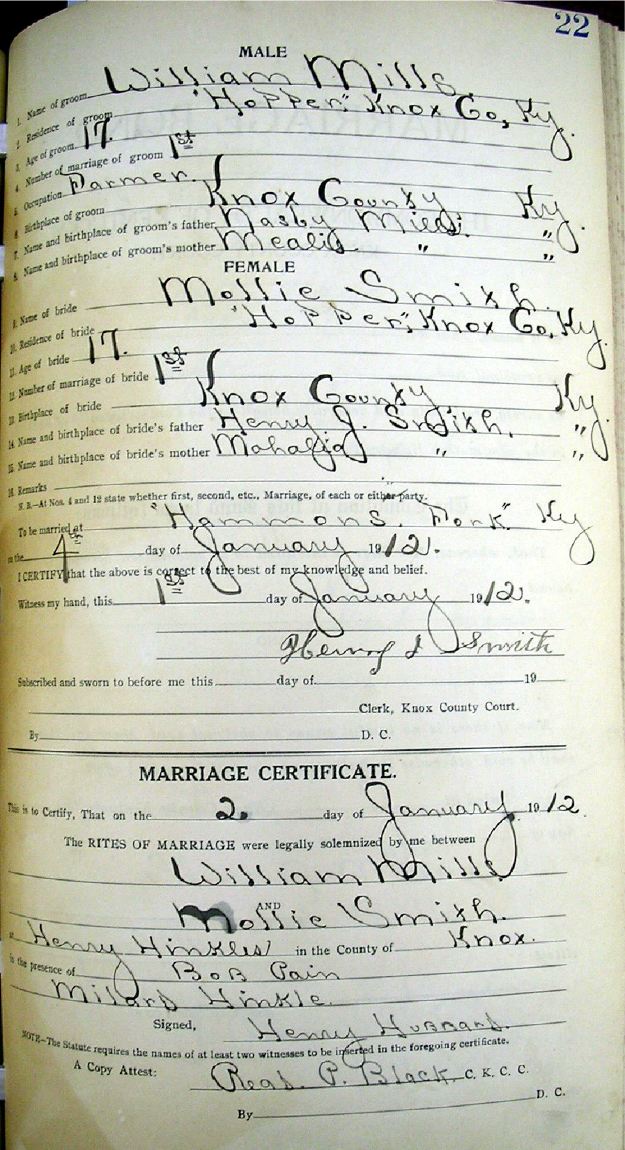 22
MALE
1. Name of groom William Mills.
2. Residence of groom "Hopper," Knox Co, Ky.
3. Age of groom 17.
4. Number of marriage of groom 1st
5. Occupation Farmer.
6. Birthplace of groom Knox County Ky.
7. Name and birthplace of groom's father Nasby Mills. "
8. Name and birthplace of groom's mother " "
FEMALE
9. Name of bride Mollie Smith.
10. Residence of bride "Hopper," Knox Co, Ky.
11. Age of bride 17.
12. Number of marriage of bride 1st
13. Birthplace of bride Knox County Ky.
14. Name and birthplace of bride's father Henry J. Smith. "
15. Name and birthplace of bride's mother " "
16. Remarks
N. B.—At Nos. 4 and 12 state whether first, second, etc., Marriage, of each or either party.
To be married at "Hammons. Fork" Ky
on the 4th day of January 1912.
I CERTIFY that the above is correct to the best of my knowledge and belief.
Witness my hand, this 1st day of January 1912.
Henry J Smith
Subscribed and sworn to before me this day of 19
Clerk, Knox County Court.
By D. C.
MARRIAGE CERTIFICATE.
This is to Certify, That on the 2. day of January 1912.
The RITES OF MARRIAGE were legally solemnized by me between
William Mills
AND
Mollie Smith.
at Henry Hinkles in the County of Knox.
in the presence of Bob Pain
Milard Hinkle.
Signed, Henry Hubbard.
NOTE—The Statute requires the names of at least two witnesses to be inserted in the foregoing certificate.
A Copy Attest: Read. P. Black C. K. C. C.
By D. C.